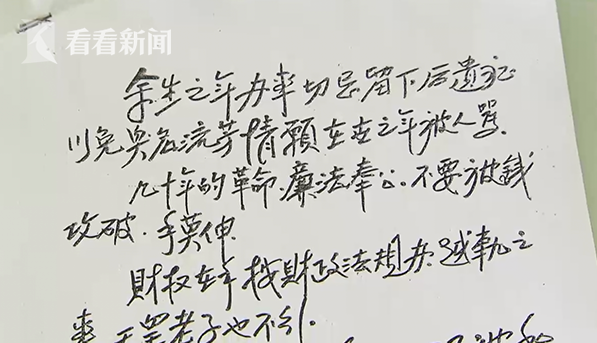 看看新闻
余生之年办事切忌留下后遗症
以免臭名流芳情願在世之年被人骂.
几十年的革命.廉法奉公.不要被錢
攻破.手莫伸.
財权在手找財政法规办.越軌之
事 天皇老子也不行.